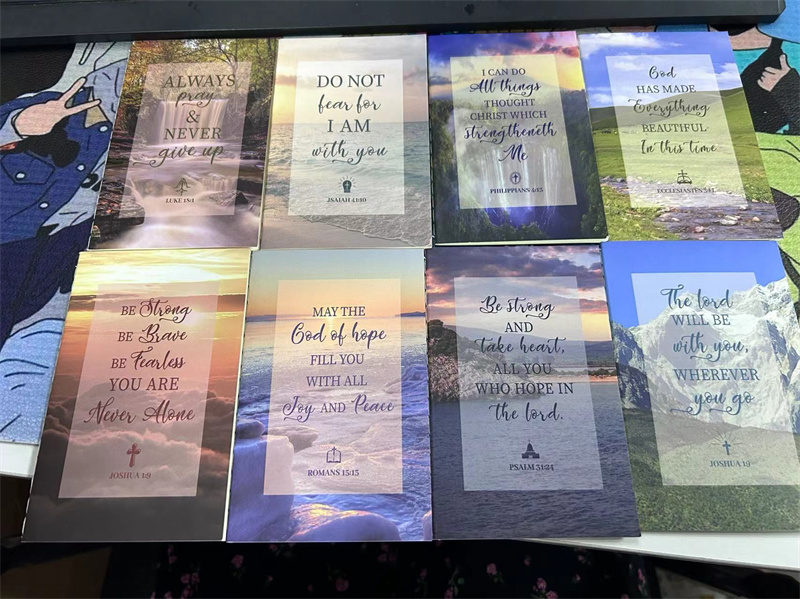 ALWAYS
pray
&
NEVER
give up
LUKE 18:1
DO NOT
fear for
I AM
with you
ISAIAH 41:10
I CAN DO
All things
THOUGHT
CHRIST WHICH
strengtheneth
Me
PHILIPPIANN 4:13
God
HAS MADE
Everything
BEAUTIFUL
In this time
ECCLESIASTES 3:11
BE Strong
BE Brave
BE Fearless
YOU ARE
Never Alone
JOSHUA 1:9
MAY THE
God of hope
FILL YOU
WITH ALL
Joy AND Peace
ROMANS 15:13
Be strong
AND
take heart,
ALL YOU
WHO HOPE IN
the lord.
PSALM 31:24
The lord
WILL BE
with you,
WHEREVER
you go
JOSHUA 1:9